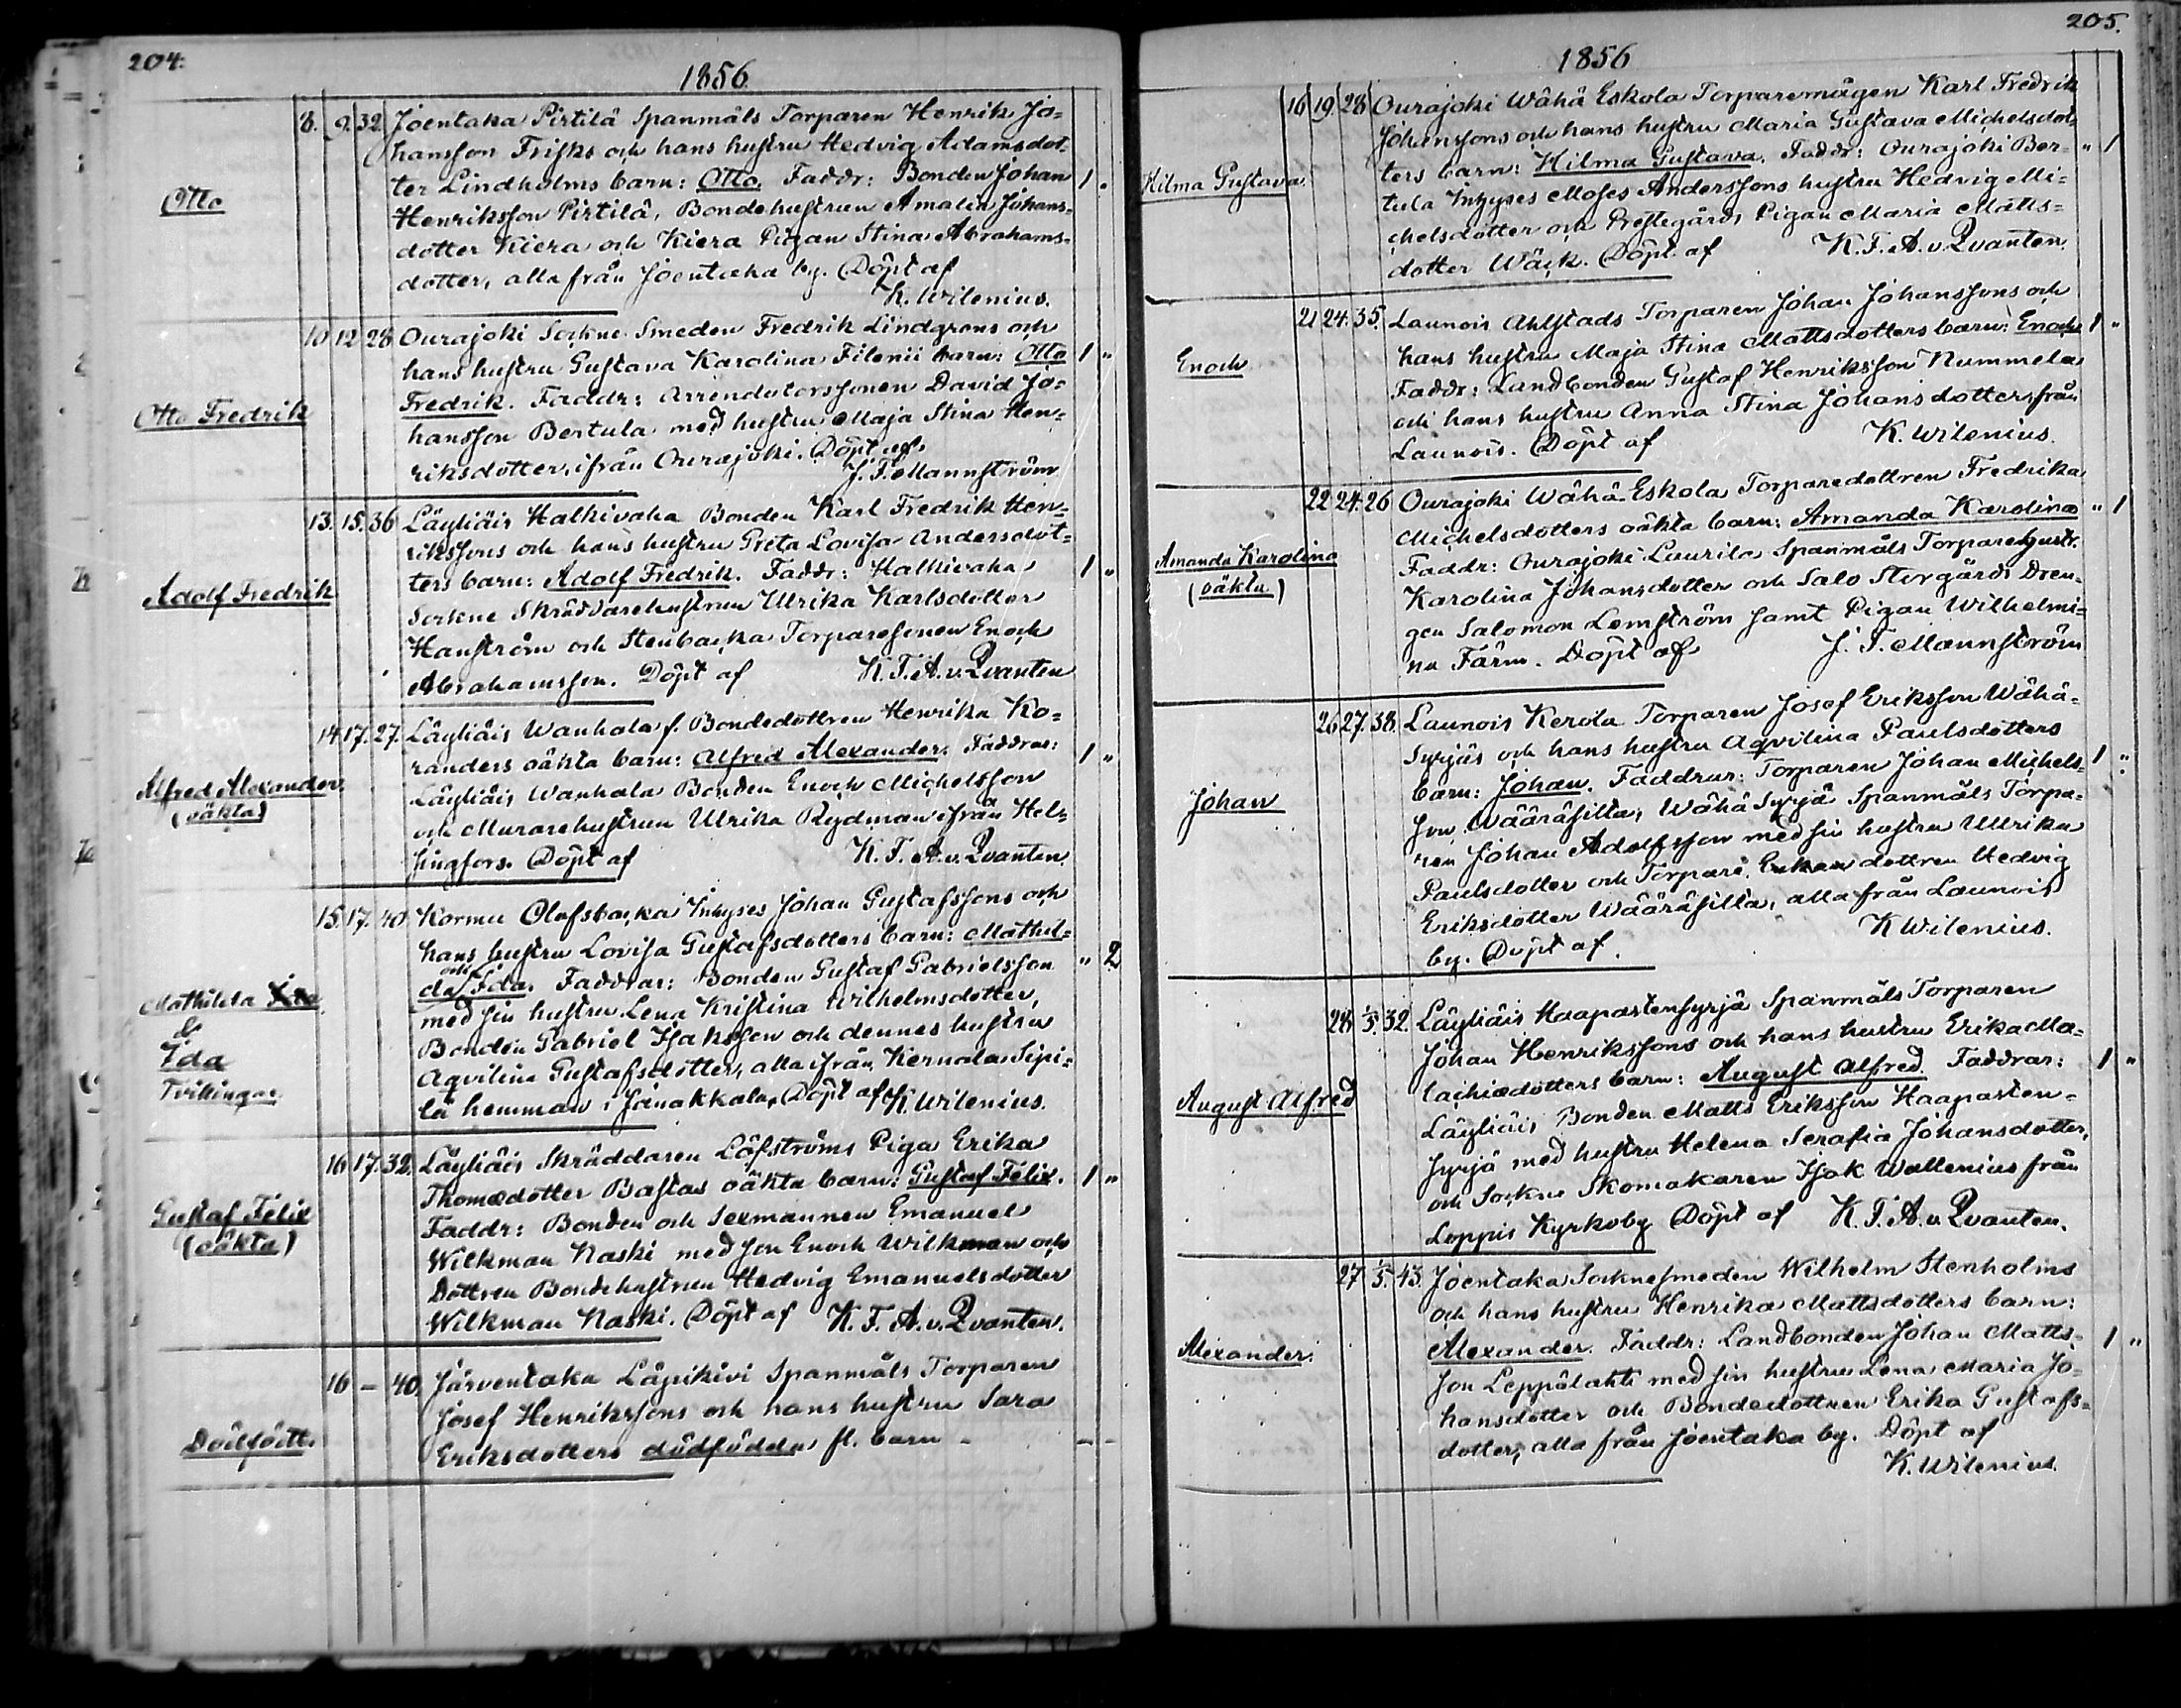 204.
1856.
Otto
8. 9. 32. Joentaka Pirtilä Spanmåls Torparen Henrik Jo=
hansson Frisks och hans hustru Hedvig Adamsdot=
ter Lindholms barn: Otto. Faddr: Bonden Johan 1 "
Henriksson Pirtilä, Bondehustrun Amalia Johans=
dotter Kiera och Kiera Pigan Stina Abrahams=
dotter, alla från Joentaka by. Döpt af
K. Wilenius.
Otto Fredrik
10 12 28 Ourajoki Sockne Smeden Fredrik Lindgrens och
hans hustru Gustava Karolina Filenii barn: Otto 1 "
Fredrik. Faddr: Arrendatorssonen David Jo=
hansson Bertula med hustru Maja Stina Hen=
riksdotter, ifrån Ourajoki. Döpt af
J. F. Mannström
Adolf Fredrik
13. 15. 36 Läyliäis Halkivaha Bonden Karl Fredrik Hen=
rikssons och hans hustru Greta Lovisa Andersdot=
ters barn: Adolf Fredrik. Faddr: Halkivaha 1 "
Sockne Skräddarehustrun Ulrika Karlsdotter
Hanström och Stenbacka Torparesonen Enoch
Abrahamsson. Döpt af K. F. A. v. Qvanten
Alfred Alexander
(oäkta)
14. 17. 27. Läyliäis Wanhala f. Bondedottren Henrika Ko=
randers oäkta barn: Alfred Alexander. Faddrar: 1 "
Läyliäis Wanhala Bonden Enoch Michelsson
och Murarehustrun Ulrika Rydman ifrån Hel=
singfors. Döpt af K. F. A. v. Qvanten
Mathilda Ida
&
Ida
Tvillingar
15. 17. 40. Kormu Olofsbacka Inhyses Johan Gustafssons och
hans hustru Lovisa Gustafsdotters barn: Mathil=
da och Ida. Faddrar: Bonden Gustaf Gabrielsson " 2
med sin hustru Lena Kristina Wilhelmsdotter,
Bonden Gabriel Isaksson och dennes hustru
Aqvilina Gustafsdotter, alla ifrån Kernala Sipi=
lä hemman i Janakkala. Döpt af K. Wilenius.
Gustaf Felix
(oäkta)
16 17. 32. Läyliäis Skräddaren Löfströms Piga Erika
Thomædotter Bastas oäkta barn: Gustaf Felix. 1 "
Faddr: Bonden och Sexmannen Emanuel
Wilkman Naski med son Enoch Wilkman och
Dottren Bondehustrun Hedvig Emanuelsdotter
Wilkman Naski. Döpt af K. F. A. v. Qvanten.
Dödfödt.
16 – 40. Järventaka Läpikivi Spanmåls Torparen
Josef Henrikssons och hans hustru Sara
Eriksdotters dödfödda fl. barn – – –
205.
1856
Hilma Gustava
16 19. 28 Ourajoki Wähä Eskola Torparemågen Karl Fredrik
Johanssons och hans hustru Maria Gustava Michelsdot=
ters barn: Hilma Gustava. Faddr: Ourajoki Ber= " 1
tula Inhyses Moses Anderssons hustru Hedvig Mi=
chelsdotter och Prestegårds Pigan Maria Matts=
dotter Wäck. Döpt af K. F. A. v. Qvanten.
Enoch
21 24. 35. Launois Ahlstads Torparen Johan Johanssons och
hans hustru Maja Stina Mattsdotters barn: Enoch 1 "
Faddr: Landbonden Gustaf Henriksson Nummela
och hans hustru Anna Stina Johansdotter, från
Launois. Döpt af K. Wilenius.
Amanda Karolina
(oäkta)
22 24. 26 Ourajoki Wähä-Eskola Torparedottren Fredrika
Michelsdotters oäkta barn: Amanda Karolina " 1
Faddr: Ourajoki Laurila Spanmåls Torparehustr.
Karolina Johansdotter och Salo Storgårds Dren=
gen Salomon Lemström samt Pigan Wilhelmi=
na Färm. Döpt af J. F. Mannström
Johan
26 27. 38. Launois Kerola Torparen Josef Eriksson Wähä=
Syrjäs och hans hustru Aqvilina Paulsdotters
barn: Johan. Faddrar: Torparen Johan Michels= 1 "
son Wääräsilta, Wähä Syrjä Spanmåls Torpa=
ren Johan Adolfsson med sin hustru Ulrika
Paulsdotter och Torpare Enkan dottren Hedvig
Eriksdotter Wääräsilta, alla från Launois
by. Döpt af. K Wilenius.
August Alfred
28 1/5. 32. Läyliäis Haapastensyrjä Spanmåls Torparen
Johan Henrikssons och hans hustru Erika Ma=
lachiædotters barn: August Alfred. Faddrar: 1 "
Läyliäis Bonden Matts Eriksson Haapasten=
syrjä med hustru Helena Serafia Johansdotter,
och Sockne Skomakaren Isak Wallenius från
Loppis Kyrkoby Döpt af K. F. A. v. Qvanten.
Alexander.
27 1/5. 43. Joentaka Socknesmeden Wilhelm Stenholms
och hans hustru Henrika Mattsdotters barn:
Alexander. Faddr: Landbonden Johan Matts= 1 "
son Leppälahti med sin hustru Lena Maria Jo=
hansdotter och Bondedottren Erika Gustafs=
dotter, alla från Joentaka by. Döpt af
K. Wilenius.